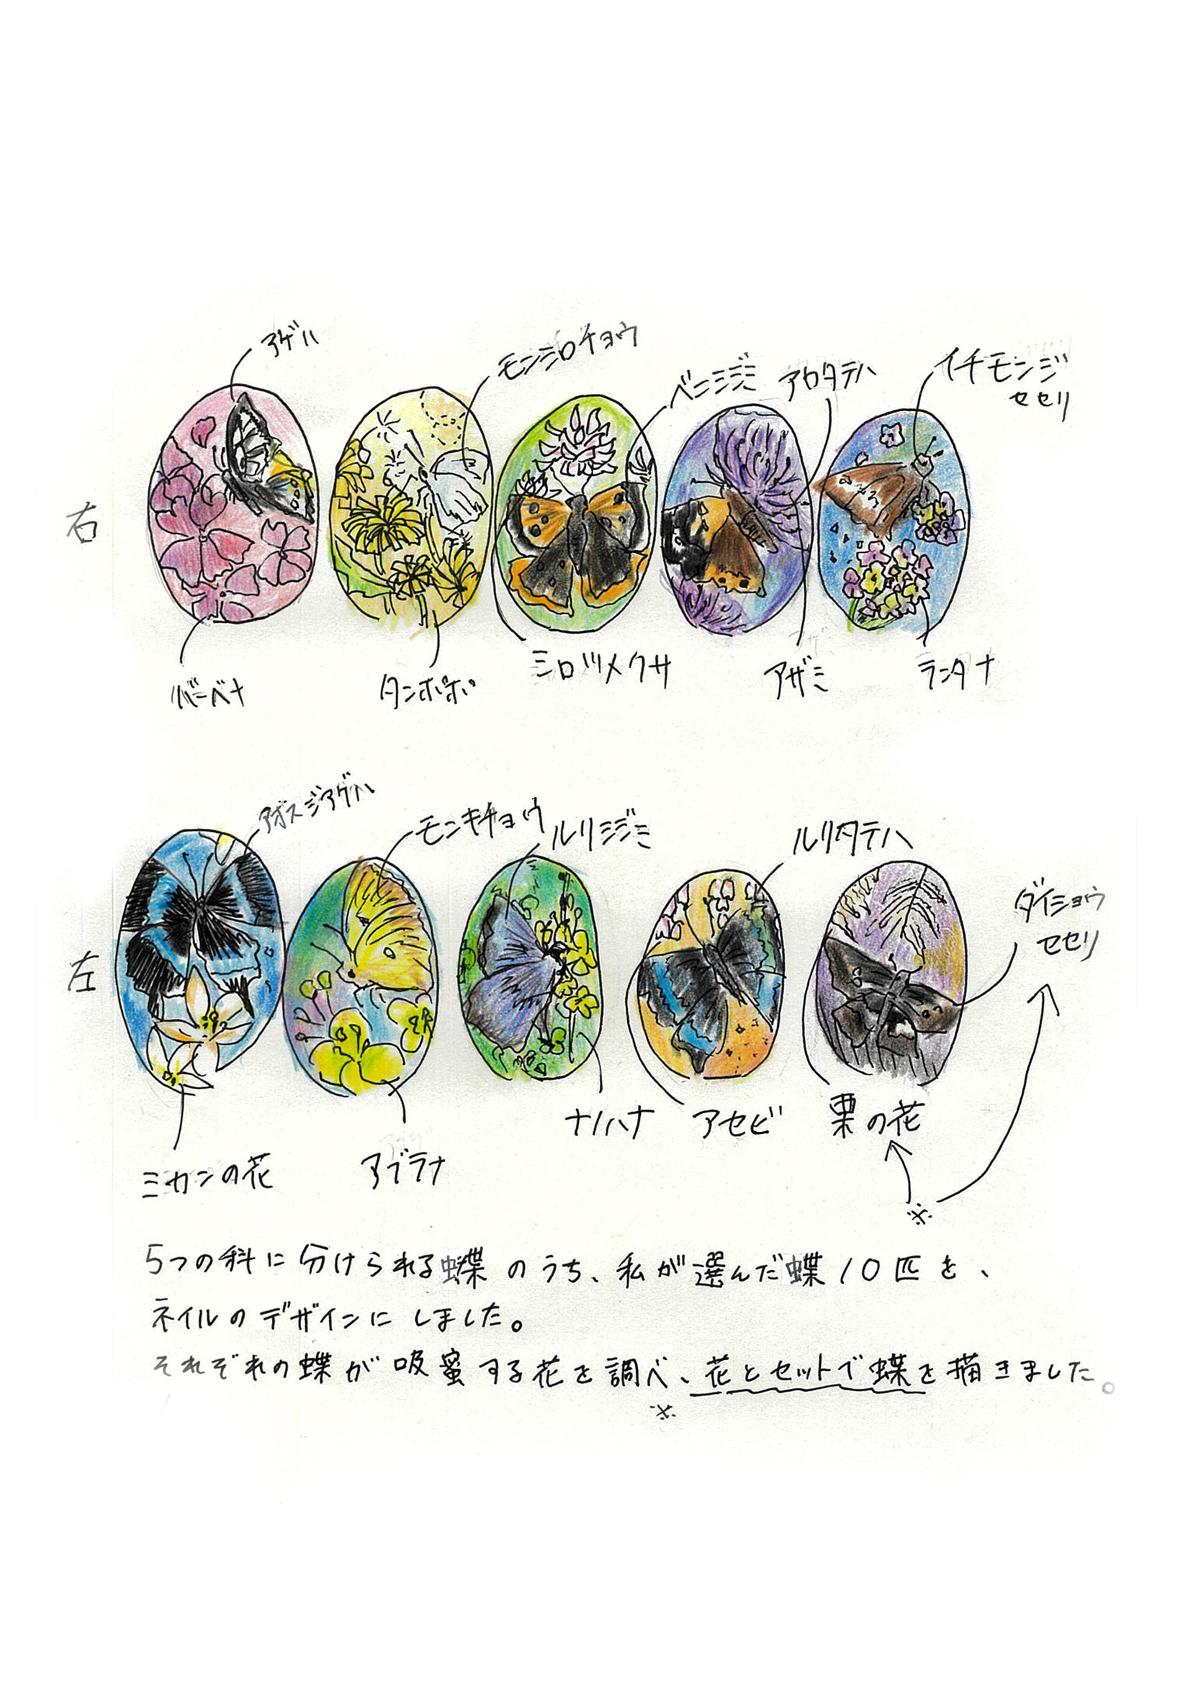 アゲハ
モンシロチョウ
ベニシジミ
アカタテハ
イチモンジ
セセリ
右
バーベナ
タンポポ
シロツメクサ
アザミ
ランタナ
アオスジアゲハ
モンキチョウ
ルリシジミ
ルリタテハ
ダイミョウ
セセリ
左
ミカンの花
アブラナ
ナノハナ
アセビ
栗の花
※
5つの科に分けられる蝶のうち、私が選んだ蝶10匹を、
ネイルのデザインにしました。
それぞれの蝶が吸蜜する花を調べ、花とセットで蝶を描きました。
※